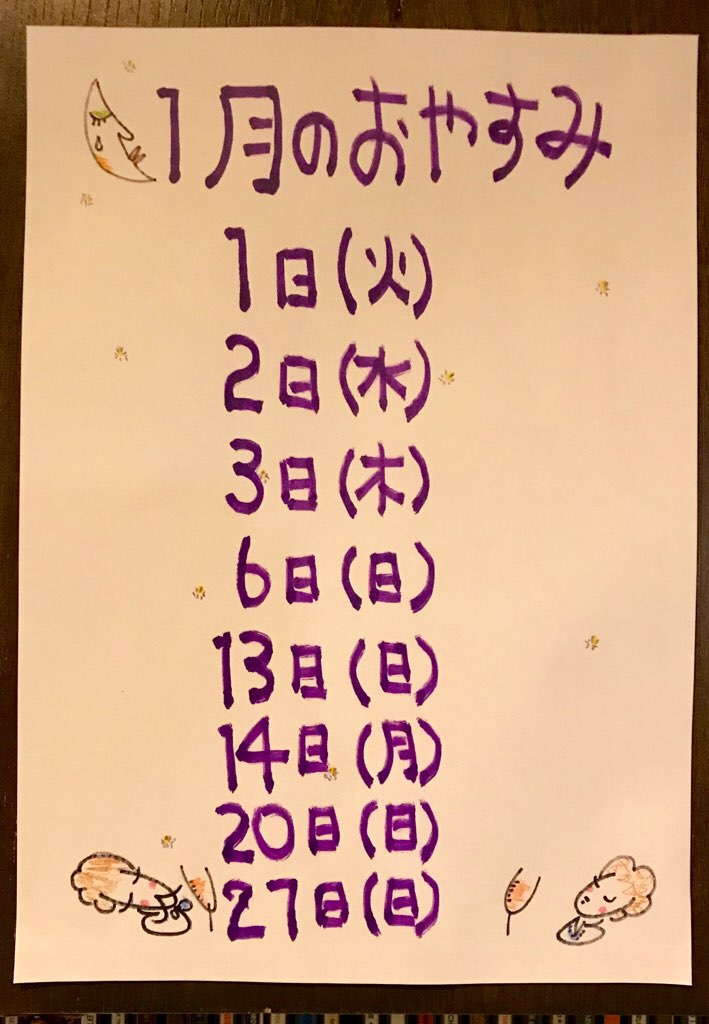 1月のおやすみ
1日(火)
2日(水)
3日(木)
6日(日)
13日(日)
14日(月)
20日(日)
27日(日)